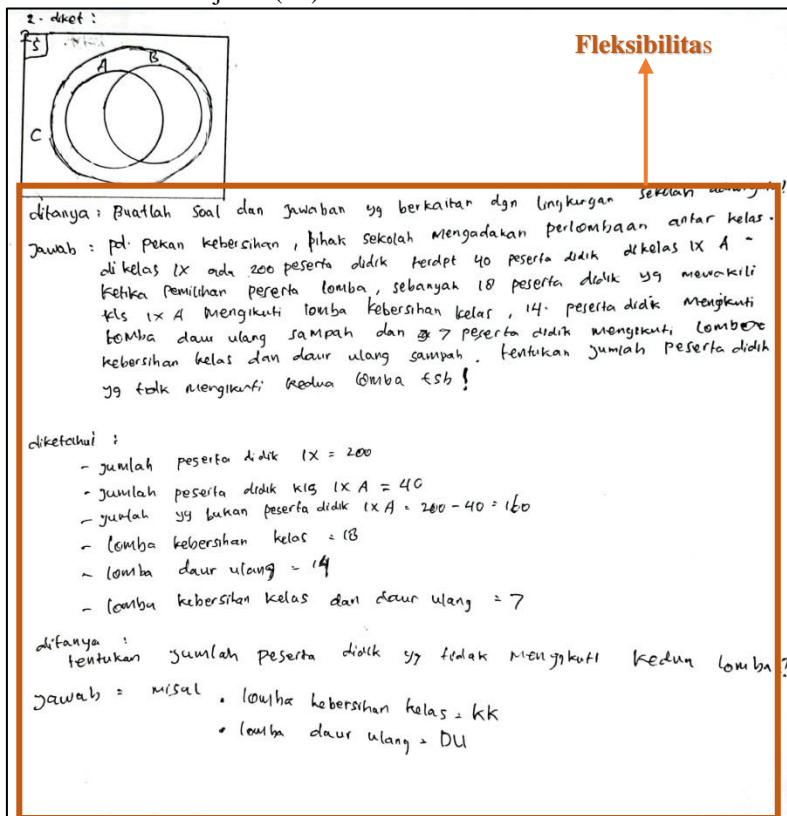 2. diket :
S
A B
C
Fleksibilitas
ditanya : Buatlah soal dan jawaban yg berkaitan dgn lingkungan sekolah
Jawab : pd. pekan kebersihan, pihak sekolah mengadakan perlombaan antar kelas.
di kelas IX ada 200 peserta didik terdpt 40 peserta didik dikelas IX A -
ketika pemilihan peserta lomba, sebanyak 18 peserta didik yg mewakili
kls IX A mengikuti lomba kebersihan kelas, 14. peserta didik mengikuti
lomba daur ulang sampah dan 7 peserta didik mengikuti lomba
kebersihan kelas dan daur ulang sampah. tentukan jumlah peserta didik
yg tdk mengikuti kedua lomba tsb !
diketahui :
- jumlah peserta didik IX = 200
- jumlah peserta didik kls IX A = 40
- jumlah yg bukan peserta didik IX A = 200 - 40 = 160
- lomba kebersihan kelas = 18
- lomba daur ulang = 14
- lomba kebersihan kelas dan daur ulang = 7
ditanya :
tentukan jumlah peserta didik yg tidak mengikuti kedua lomba ?
Jawab = misal . lomba kebersihan kelas = KK
• lomba daur ulang = DU